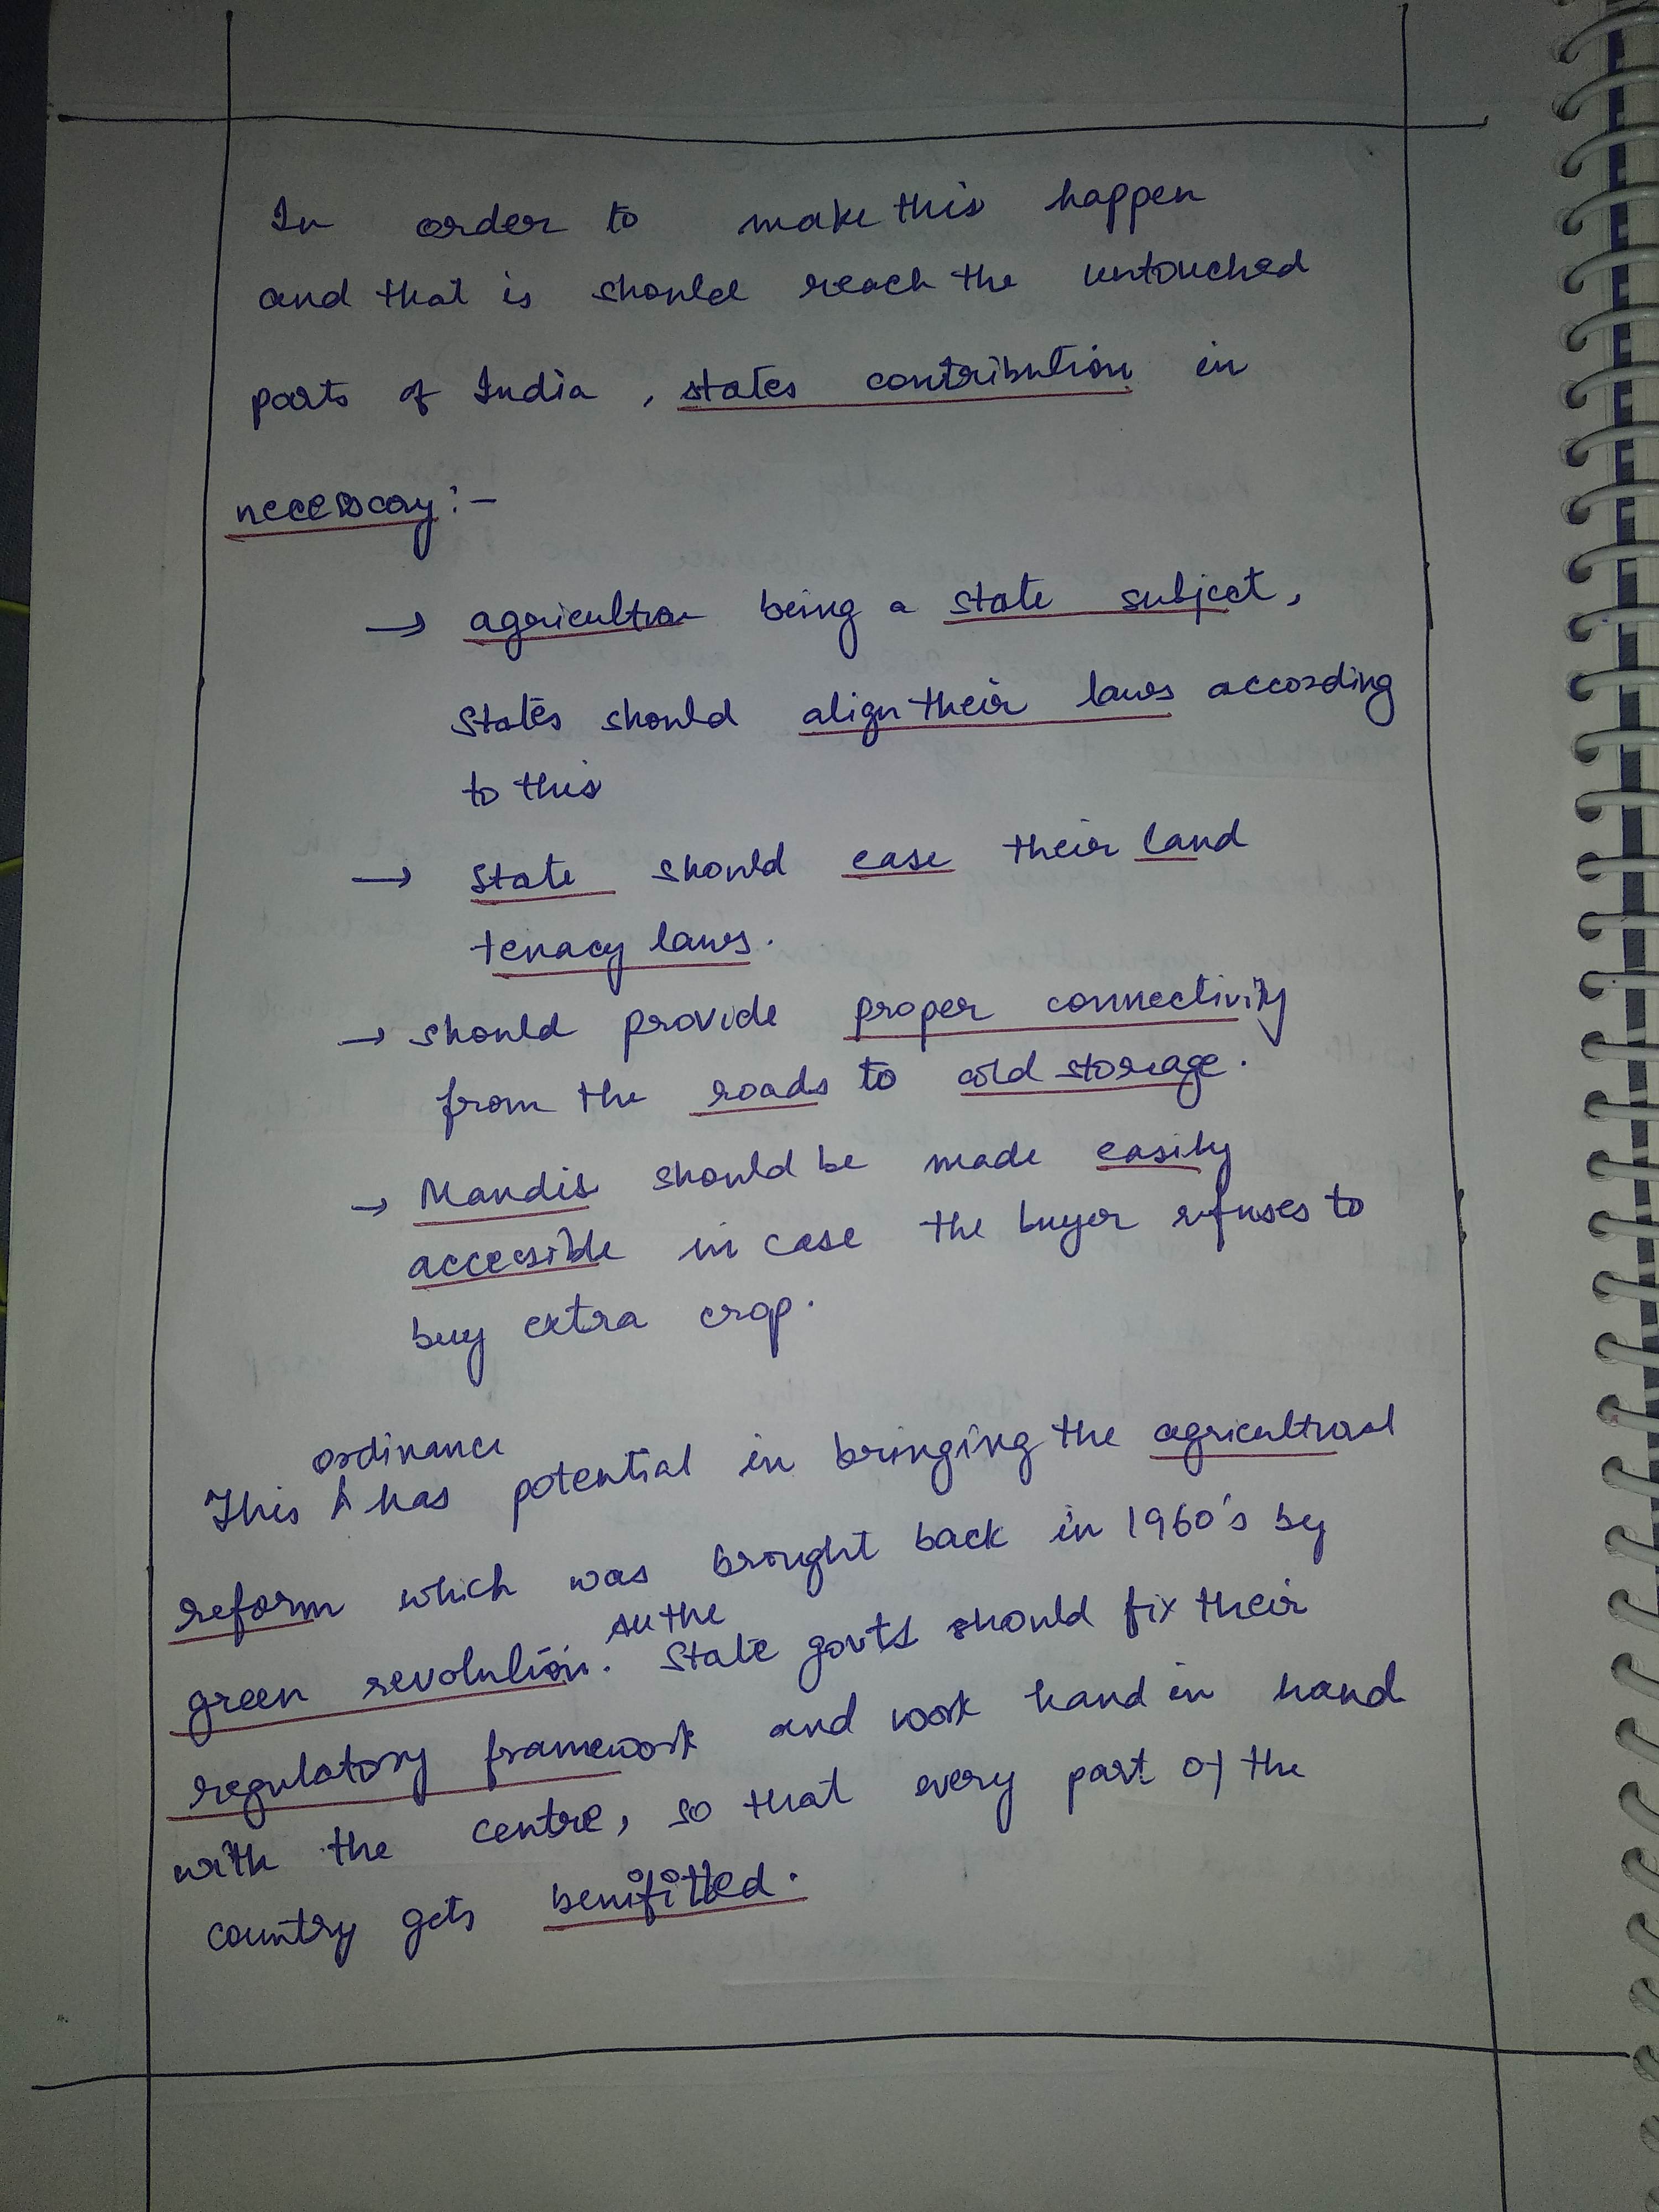 In order to make this happen
and that is should reach the untouched
parts of India, states contribution in
necessary:-
→ agricultra being a state subject,
states should align their laws according
to this
→ State should ease their land
tenacy laws.
→ should provide proper connectivity
from the roads to cold storage.
→ Mandis should be made easily
accessible in case the buyer refuses to
buy extra crop.
ordinance
This ^ has potential in bringing the agricultral
reform which was brought back in 1960's by
All the
green revolution. State govts should fix their
regulatory framework and work hand in hand
with the centre, so that every part of the
country gets benifitted.